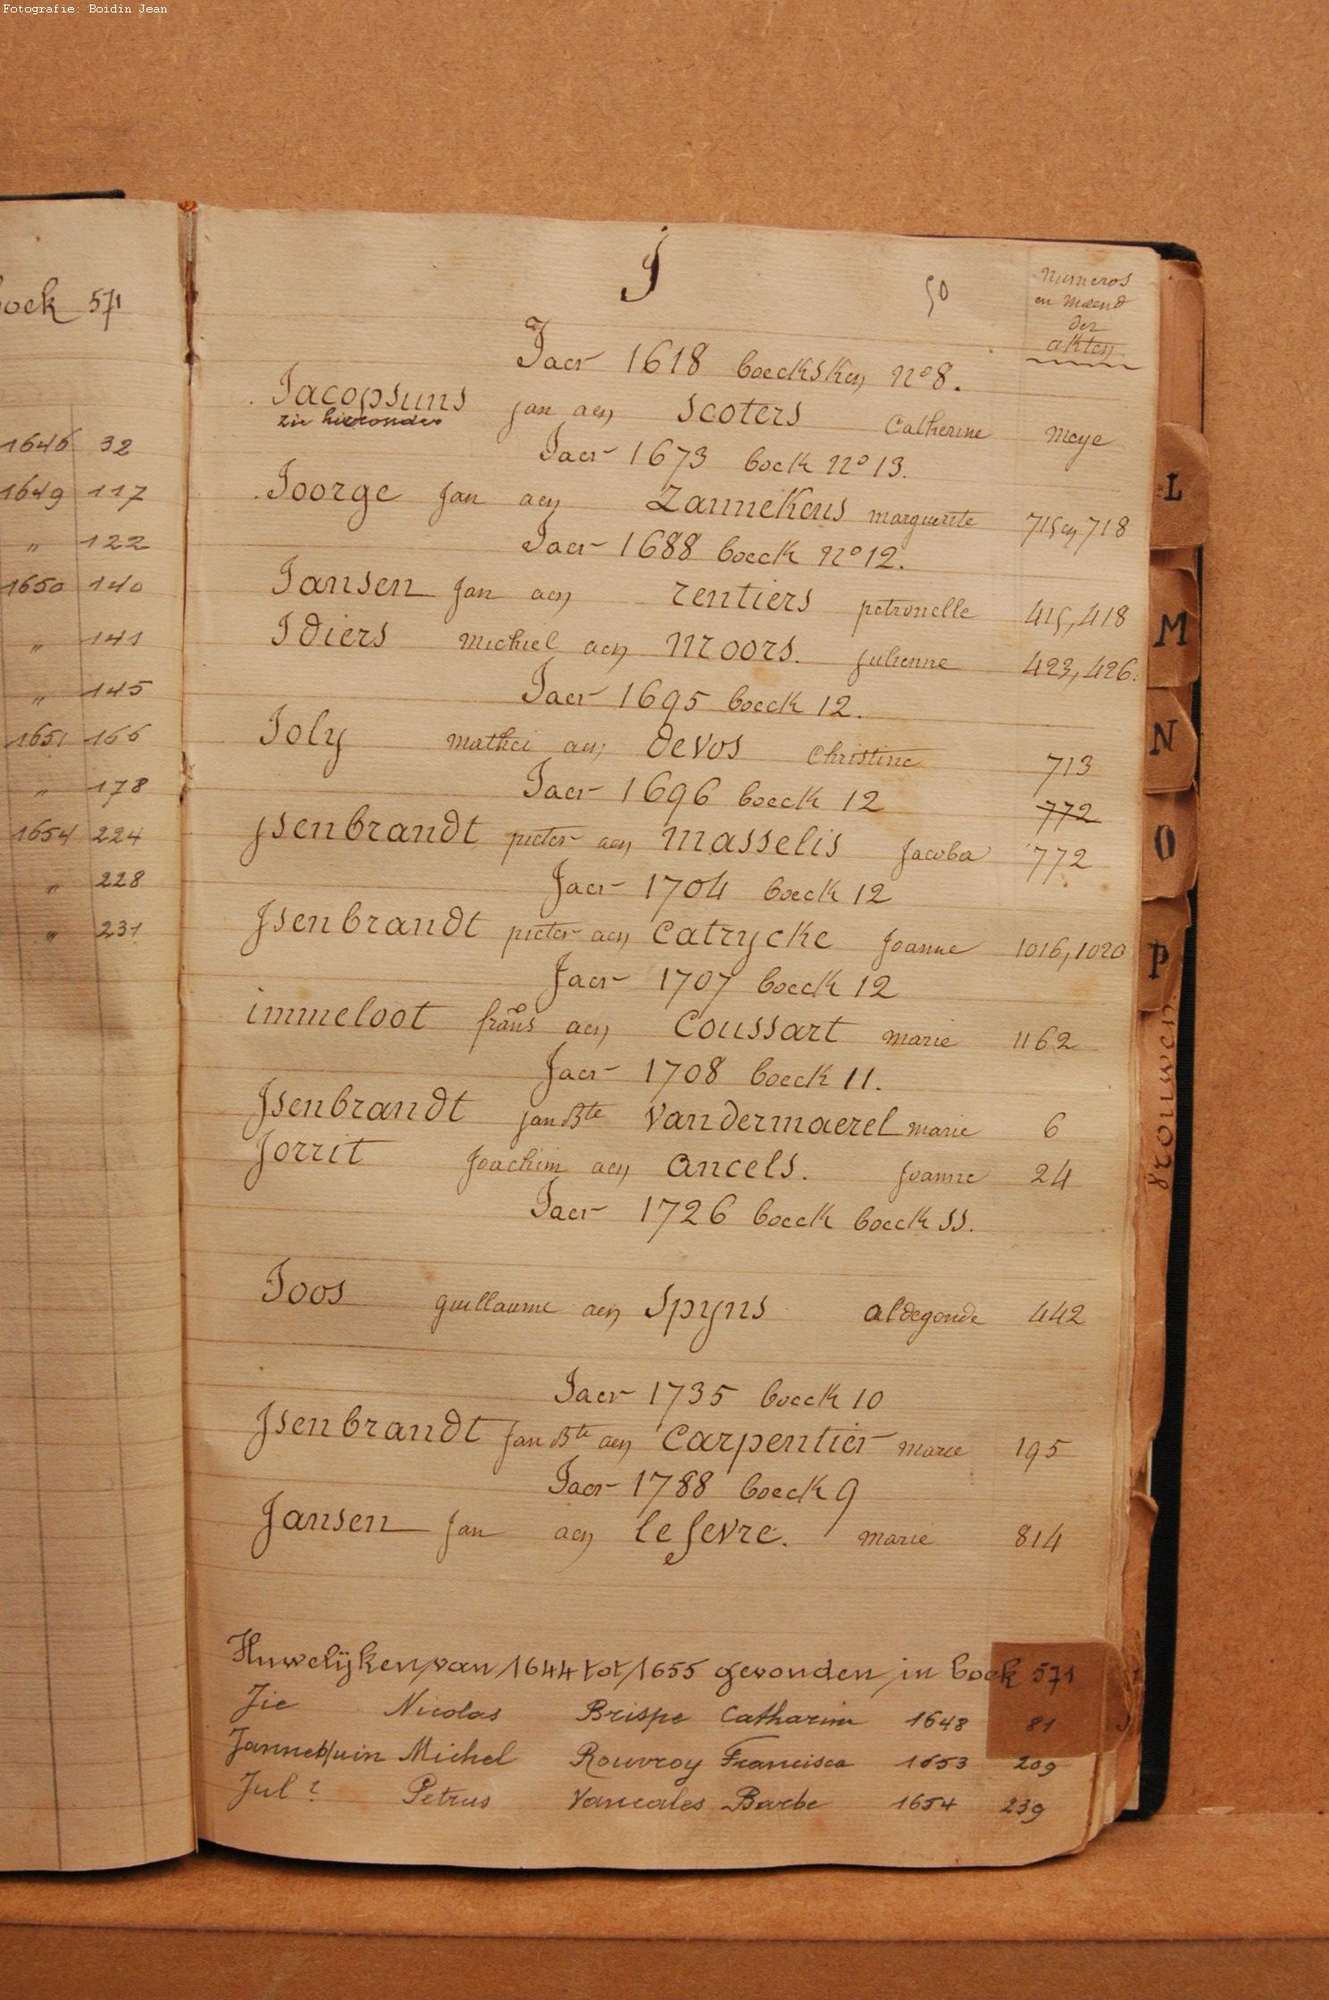 Fotografie: Boidin Jean
boek 571
1646 32
1649 117
" 122
1650 140
" 141
" 145
1651 166
" 178
1654 224
" 228
" 231
J
50
Numeros
en maend
der
akten
Jaer 1618 boecksken No 8.
Jacopsuns jan aen Scoters Catherine meye
zie hieronder
Jaer 1673 boek No 13.
Joorge Jan aen Zannekens marguerite 715 en 718
Jaer 1688 boeck No 12.
Jansen Jan aen rentiers petronelle 415, 418
Idiers michiel aen moors. julienne 423, 426.
Jaer 1695 boeck 12.
Joly mathei aen devos christine 713
Jaer 1696 boeck 12 772
jsenbrandt pieter aen masselis Jacoba 772
Jaer 1704 boeck 12
Jsenbrandt pieter aen catrycke Joanne 1016, 1020
Jaer 1707 boeck 12
immeloot frans aen coussart marie 1162
Jaer 1708 boeck 11.
Jsenbrandt jan Bte vandermaerel marie 6
Jorrit Joachim aen ancels. Joanne 24
Jaer 1726 boeck boeck SS.
Joos guillaume aen Spyns aldegonde 442
Jaer 1735 boeck 10
Jsenbrandt Jan Bte aen carpentier marie 195
Jaer 1788 boeck 9
Jansen Jan aen lefevre. marie 814
Huwelijken van 1644 tot 1655 gevonden in boek 571
Jie Nicolas Brispe Catharina 1648 81
Michel Rouvroy Francisca 1653 209
Jul ? Petrus Vancales Barbe 1654 239
L
M
N
O
P
vrouwen